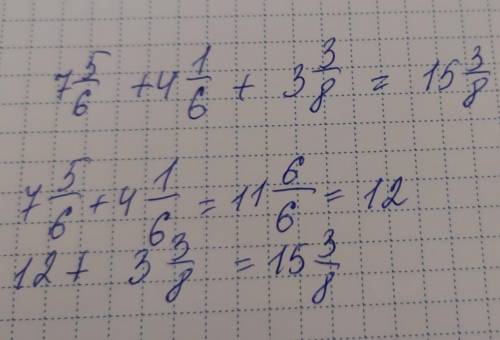 7 5/6 + 4 1/6 + 3 3/8 = 15 3/8
7 5/6 + 4 1/6 = 11 6/6 = 12
12 + 3 3/8 = 15 3/8